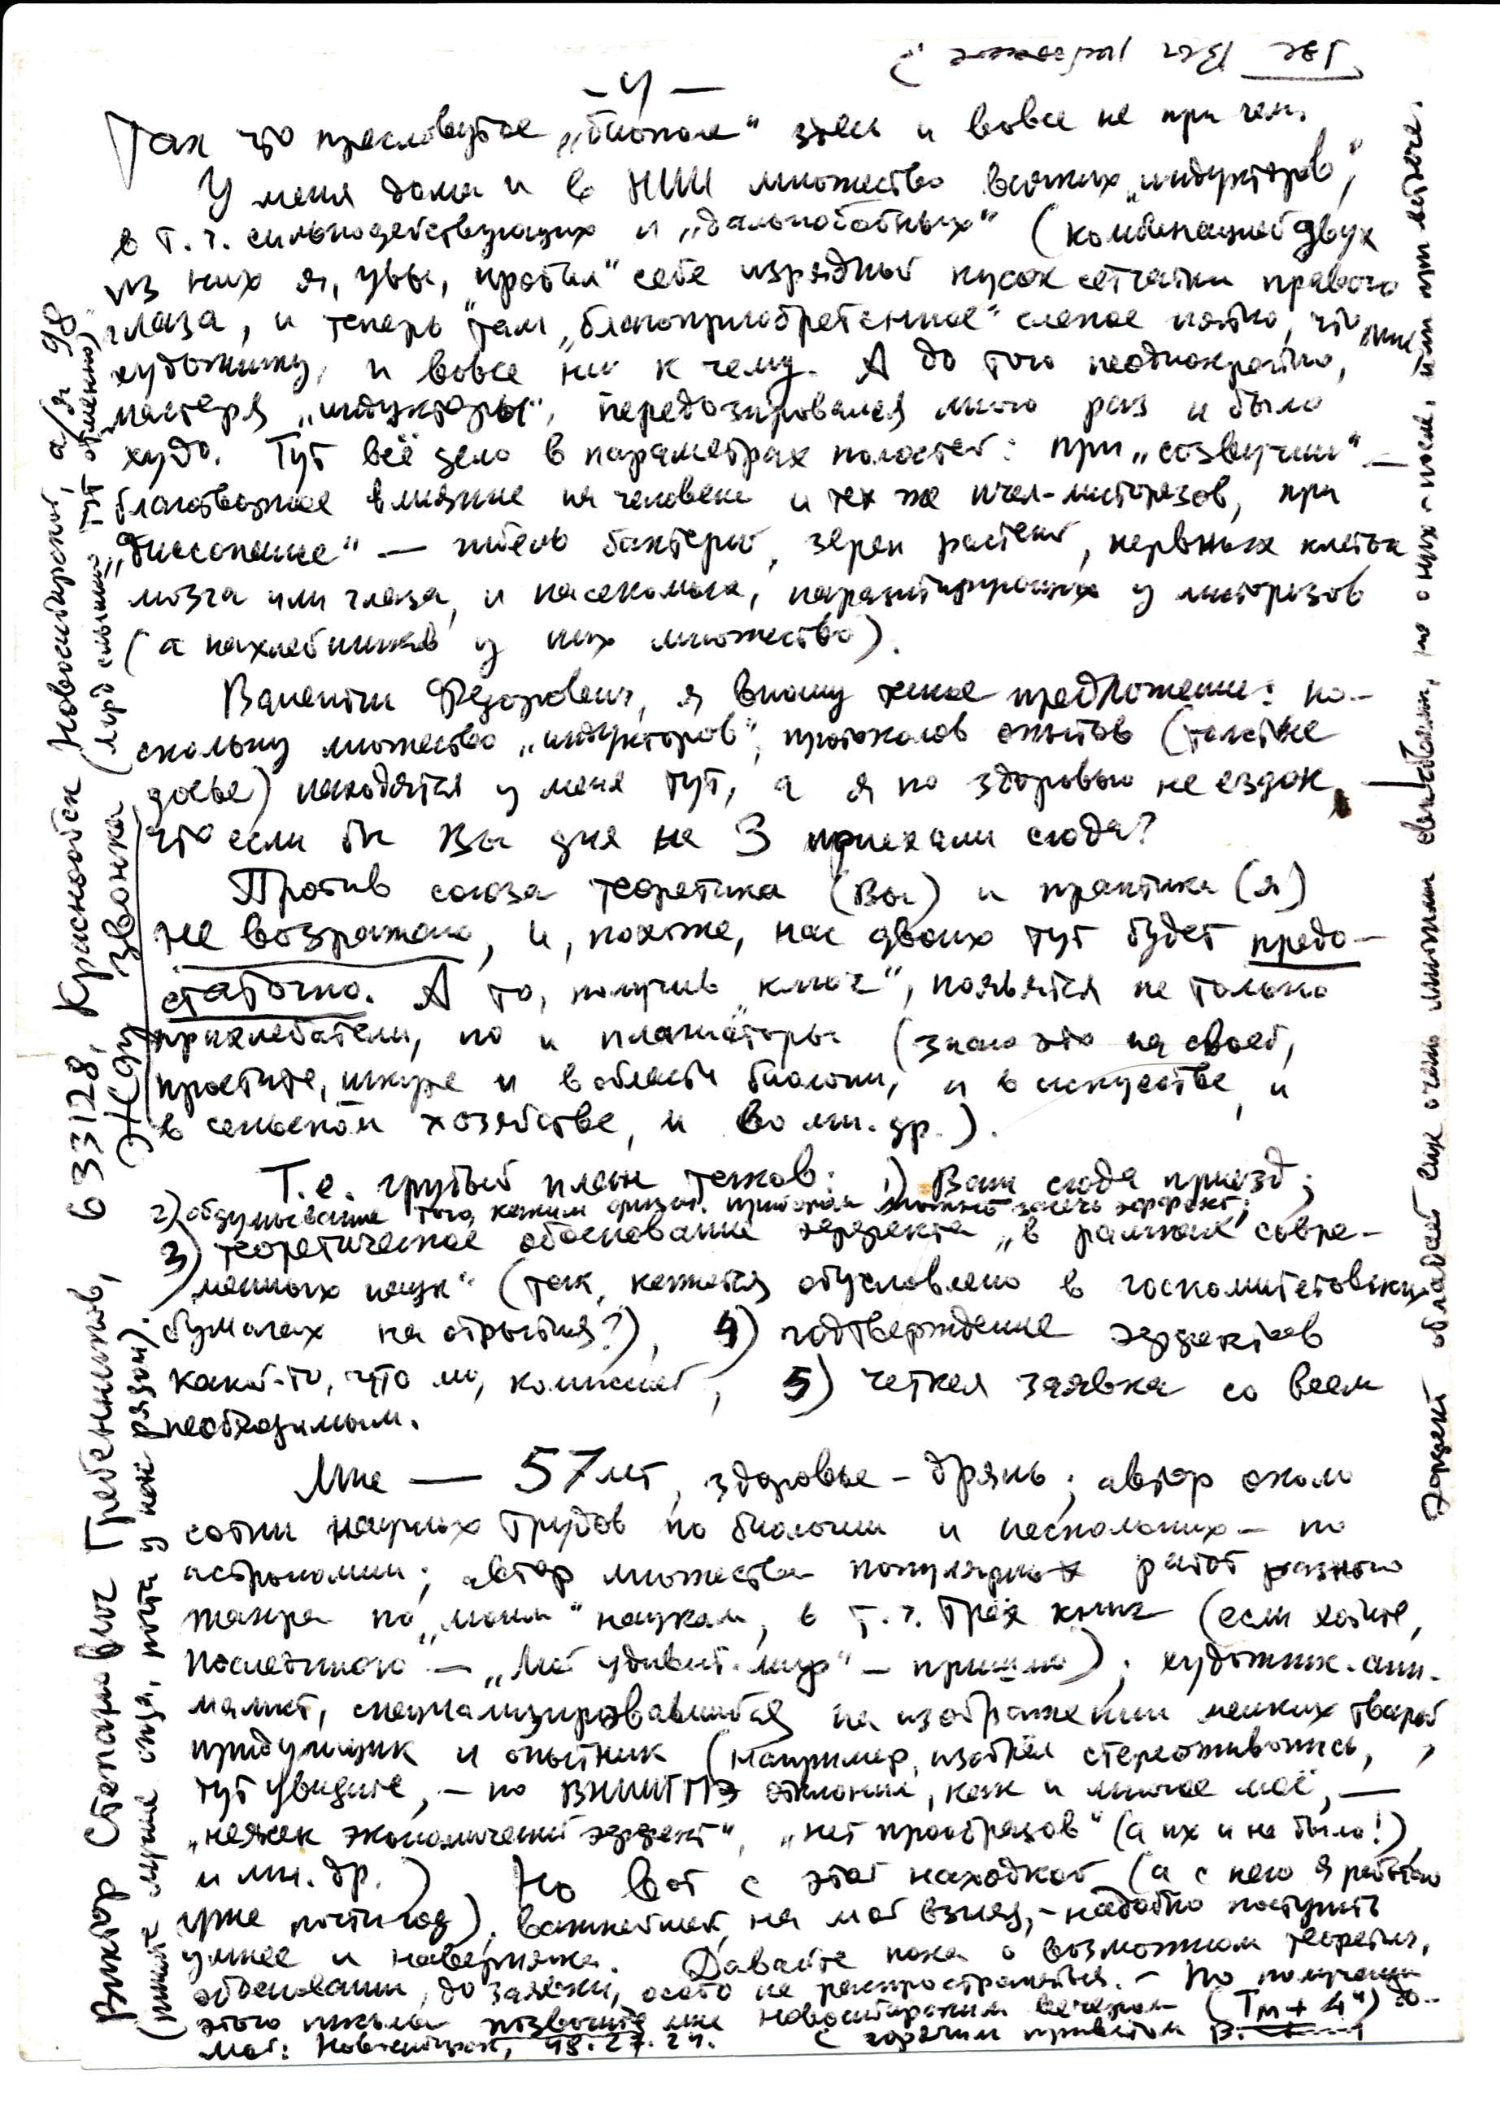 - 4 -
Так что пресловутое „биополе“ здесь и вовсе не при чем.
У меня дома и в НИИ множество всяких „индукторов“,
в т. ч. сильнодействующих и „дальнобойных“ (комбинацией двух
из них я, увы, „пробил“ себе изрядный кусок сетчатки правого
глаза, и теперь там „благоприобретенное“ слепое пятно, что мне,
художнику, и вовсе ни к чему. А до того неоднократно,
мастеря „индукторы“, передозировался много раз и было
худо. Тут всё дело в параметрах полостей: при „созвучии“ —
благотворное влияние на человека и тех же пчел-листорезов, при
„диссонансе“ — гибель бактерий, зерен растений, нервных клеток
мозга или глаза, и насекомых, паразитирующих у листорезов
(а нахлебников у них множество).
Валентин Федорович, я вношу такое предложение: по-
скольку множество „индукторов“, протоколов опытов (толстые
досье) находятся у меня тут, а я по здоровью не ездок, —
что если бы Вы дня на 3 приехали сюда?
Против союза теоретика (Вы) и практика (я)
не возражаю, и, похоже, нас двоих тут будет предо-
статочно. А то, получив „ключ“, появятся не только
прихлебатели, но и плагиаторы (знаю это на своей,
простите, шкуре и в области биологии, и в искусстве, и
в сельском хозяйстве, и во мн. др.).
Т.е. грубый план таков: 1) Ваш сюда приезд;
2) обдумывание того, каким физич. прибором можно засечь эффект;
3) теоретическое обоснование эффекта „в рамках совре-
менных наук“ (так, кажется, обусловлено в госкомитетовских
бумагах на открытия?), 4) подтверждение эффектов
какой-то, что ли, комиссией, 5) четкая заявка со всем
необходимым.
Мне — 57 лет, здоровье - дрянь; автор около
сотни научных трудов по биологии и нескольких - по
астрономии; автор множества популярных работ разного
жанра по „моим“ наукам, в т. ч. трёх книг (если хотите,
последнюю — „Мой удивит. мир“ - пришлю); художник-ани-
малист, специализировавшийся на изображении мелких тварей,
придумщик и опытник (например, изобрёл стереоживопись,
тут увидите, - но ВНИИГПЭ отклонил, как и многое моё, —
„неясен экономический эффект“, „нет прообразов“ (а их и не было!),
и мн. др.) Но вот с этой находкой (а с нею я работаю
уже почти год), важнейшей, на мой взгляд, - надобно поступить
умнее и наверняка. Давайте пока о возможном теоретич.
обосновании, до заявки, особо не распространяться. - По получении
этого письма позвоните мне новосибирским вечером (Тм + 4ч) до-
мой: Новосибирск, 48.27.24. С горячим приветом В.
Виктор Степанович Гребенников, 633128, Краснообск Новосибирской, а/я 98
(пишите лучше сюда, почта у нас рядом). Жду звонка (слышимость тут отменная).
Эффект обладает еще очень многими свойствами, но о них - после, или при встрече.